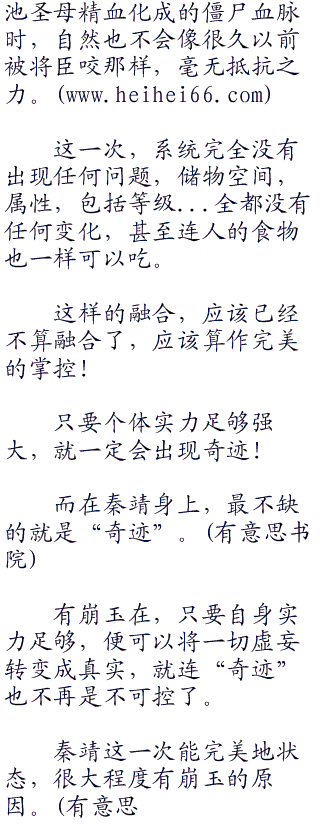 池圣母精血化成的僵尸血脉
时，自然也不会像很久以前
被将臣咬那样，毫无抵抗之
力。(www.heihei66.com)
这一次，系统完全没有
出现任何问题，储物空间，
属性，包括等级...全都没有
任何变化，甚至连人的食物
也一样可以吃。
这样的融合，应该已经
不算融合了，应该算作完美
的掌控！
只要个体实力足够强
大，就一定会出现奇迹！
而在秦靖身上，最不缺
的就是“奇迹”。(有意思书
院)
有崩玉在，只要自身实
力足够，便可以将一切虚妄
转变成真实，就连“奇迹”
也不再是不可控了。
秦靖这一次能完美地状
态，很大程度有崩玉的原
因。(有意思